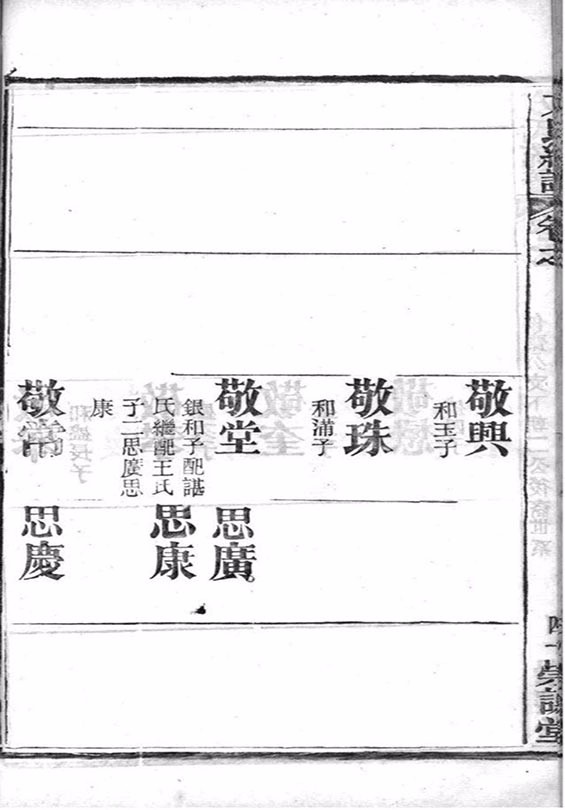 敬興
和玉子
敬珠
和滿子
敬堂
銀和子配諶
氏繼配王氏
子二思廣思
康
思廣
思康
敬常
思慶